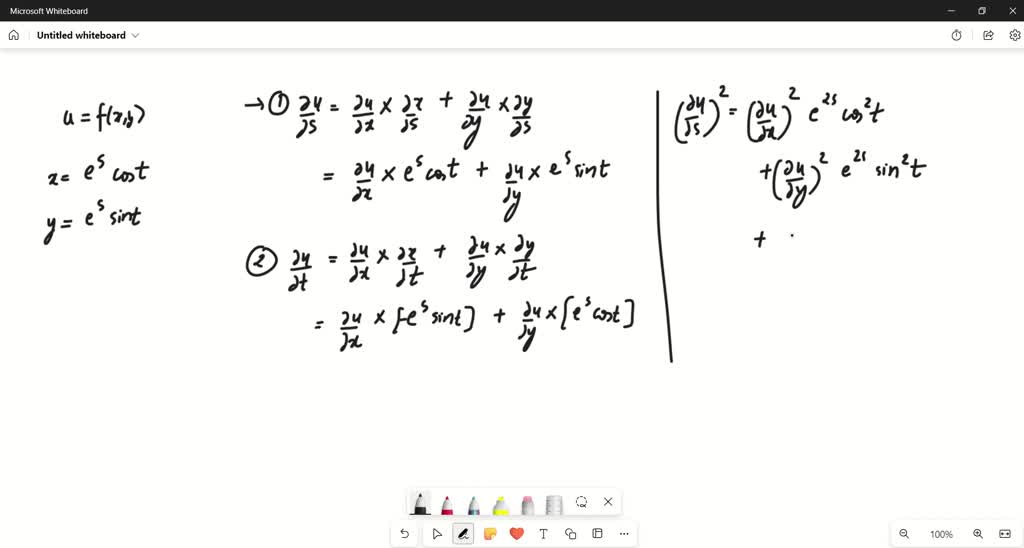 Microsoft Whiteboard
Untitled whiteboard
u = f(x,y)
x = e^s cost
y = e^s sint
→ ① ∂u/∂s = ∂u/∂x × ∂x/∂s + ∂u/∂y × ∂y/∂s
= ∂u/∂x × e^s cost + ∂u/∂y × e^s sint
② ∂u/∂t = ∂u/∂x × ∂x/∂t + ∂u/∂y × ∂y/∂t
= ∂u/∂x × [-e^s sint] + ∂u/∂y × [e^s cost]
(∂u/∂s)^2 = (∂u/∂x)^2 e^2s cos^2 t
+ (∂u/∂y)^2 e^2s sin^2 t
+ .
T
100%